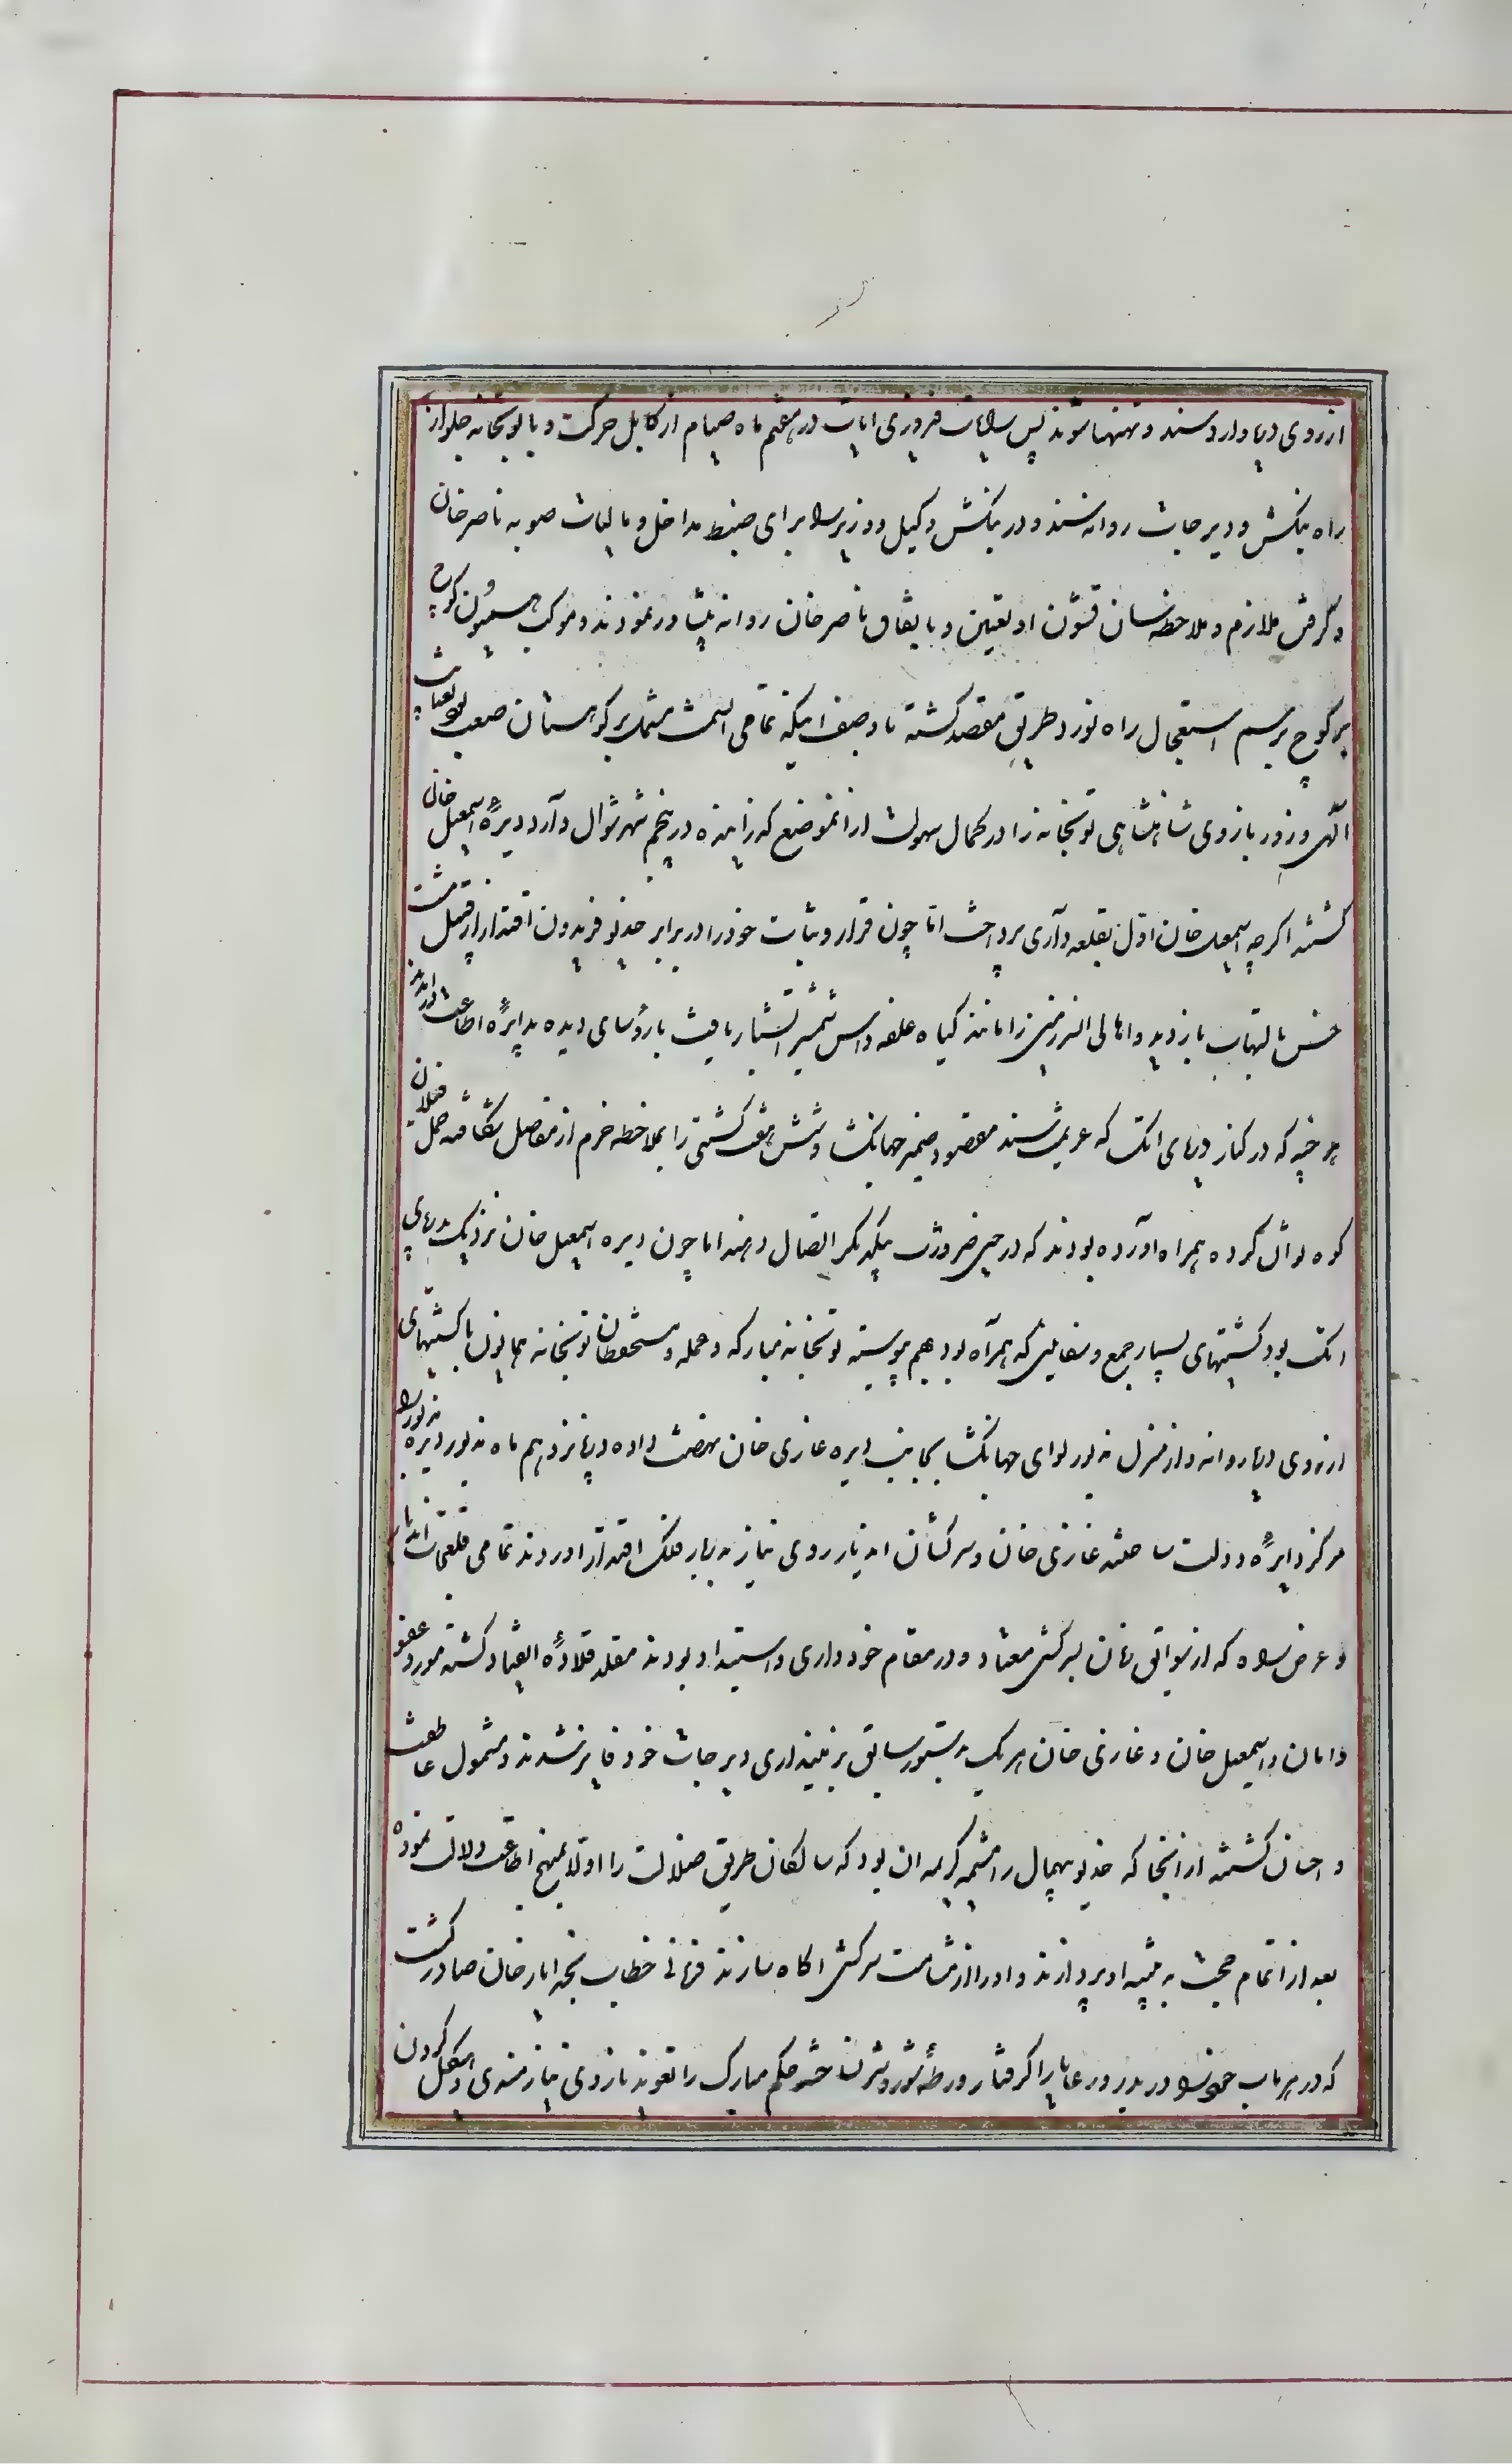 از روی دریا وارد سند و تهتها شوند پس رایات فیروزی ایات در هفتم ماه صیام از کابل حرکت و با توپخانه جلو از
راه بنکش و دیرجات روانه سند و در بنکش وکیل و وزیر را برای ضبط مداخل و مالیات صوبه ناصر خان
و گرفتن ملازم و ملاحظه سان قشون او تعیین و باتفاق ناصر خان روانه پیشاور نمودند و موکب همیون کوچ
بر کوچ برسم استعجال راه نورد طریق مقصد کشته با وصف اینکه تمامی السمت مشتمل بر کوهستان صعب بود بعنایت
الهی و زور بازوی شاهنشاهی توپخانه را در کمال سهولت از انموضع کذرانیده در پنجم شهر شوال وارد دیره اسمعیل خان
کشته اکرچه اسمعیل خان اول بقلعه داری پرداخت اما چون قرار و ثبات خود را در برابر خدیو فریدون اقتدار از قبیل مشت
خس با التهاب نار دید و اهالی انسرزمین را مانند کیاه علف داس شمشیر اتشبار یافت با رؤسای دیره بدایره اطاعت درامدند
هر چند که در کنار دریای اتک که عزیمت سند مقصود ضمیر جهانکشا و شش هفت کشتی را بملاحظه حزم از مفاصل شکافته حمل فیلان
کوه توان کرده همراه اورده بودند که در حین ضرورت بیکدیکر اتصال دهند اما چون دیره اسمعیل خان نزدیک بدریای
اتک بود کشتیهای بسیار جمع و سفاینی که همراه بود بهم پیوسته توپخانه مبارکه و عمله و مستحفظان توپخانه همایون با کشتیهای
از روی دریا روانه و از منزل مذبور لوای جهانکشا بجانب دیره غازی خان نهضت داده در پانزدهم ماه مذبور دیره مذبور را
مرکز دایره دولت ساخته غازی خان و سرکشان اندیار روی نیاز بدربار فلک اقتدار اوردند تمامی قلعجات اندیار
و عرض راه که از سوالف زمان بسرکشی معتاد و در مقام خودداری و استبداد بودند مقلد قلاده انقیاد کشته مورد عفو
و امان و اسمعیل خان و غازی خان هر یک بدستور سابق بزمینداری دیرجات خود فایز شدند و مشمول عاطفت
و احسان کشته از انجا که خدیو بیهمال را شیمه کریمه ان بود که سالکان طریق ضلالت را اولا بمنهج اطاعت دلالت نموده
بعد از اتمام حجت به تنبیه او پردازند و او را از شامت سرکشی اکاه سازند فرمانی خطاب بخدایار خان صادر کشت
که در هر باب خود را در بدر و رعایا را کرفتار ورطه شور و شر نساخته حکم مبارک را تعویذ بازوی نیازمندی و هیکل کردن